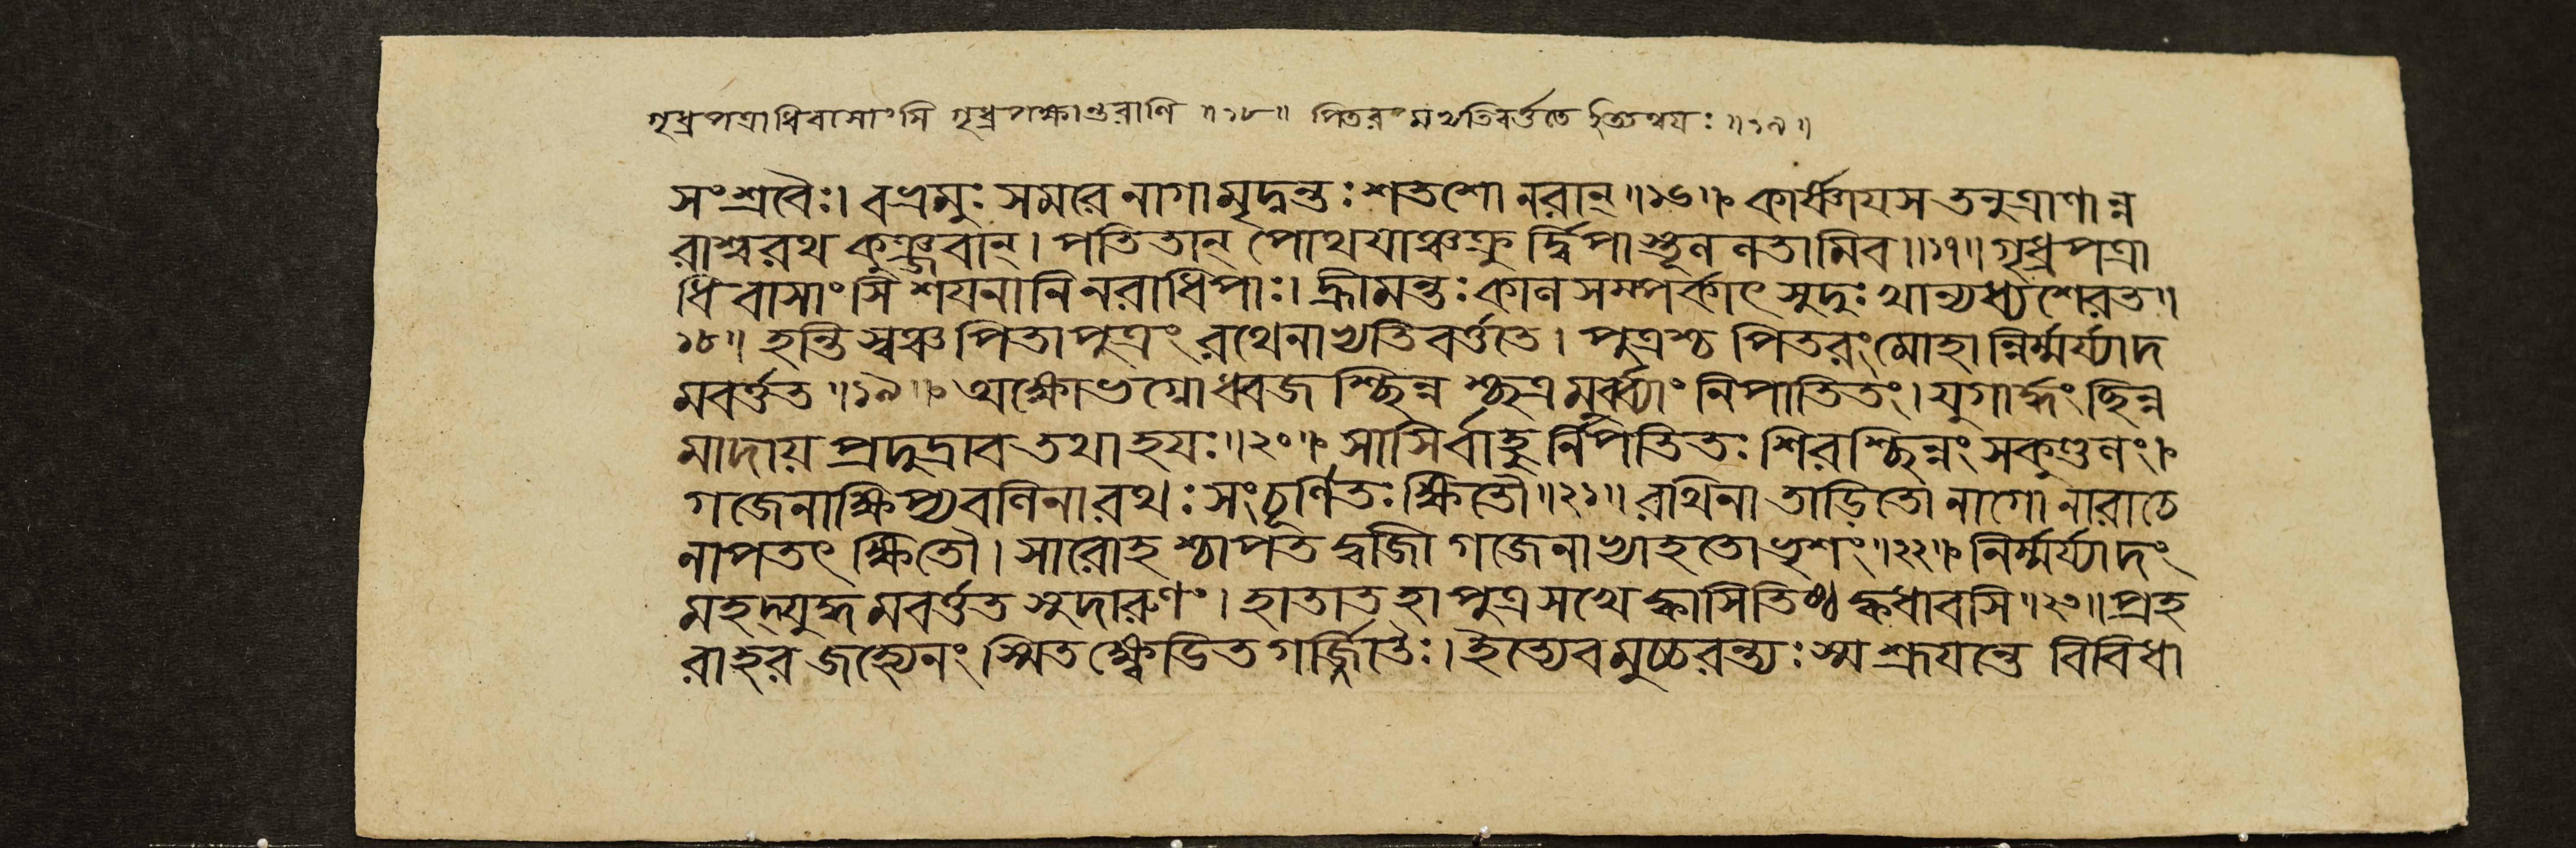 গৃধ্রপত্রাধিবাসাংসি গৃধ্রপক্ষাণ্ডরাণি ॥১৮॥ পিতরং মথতিবর্ত্ততে ইত্যন্বয়ঃ ॥১৯॥
সংশ্রবৈঃ। বভ্রমুঃ সমরে নাগামৃদ্নন্তঃ শতশো নরান্॥১৬॥ কার্ষ্ণায়স তনুত্রাণান্ন
রাশ্বরথ কুঞ্জরান্। পতিতান্ পোথয়াঞ্চক্রু র্দ্বিপাস্থূল নলানিব॥১৭॥ গৃধ্রপত্রা
ধিবাসাংসি শয়নানি নরাধিপাঃ। হ্রীমন্তঃ কাল সম্পর্কাৎ সুদুঃখান্যধ্যশেরত॥
১৮॥ হন্তি স্মঞ্চ পিতা পুত্রং রথেনাভ্যতি বর্ত্ততে। পুত্রশ্চ পিতরং মোহান্নির্ম্মর্য্যাদ
মবর্ত্তত॥১৯॥ অক্ষোভগ্নো ধ্বজ শ্ছিন্ন শ্ছত্রমুর্ব্ব্যাং নিপাতিতং। যুগার্দ্ধং ছিন্ন
মাদায় প্রদুদ্রাব তথা হয়ঃ॥২০॥ সাসির্বাহু র্নিপতিতঃ শিরশ্ছিন্নং সকুণ্ডলং।
গজেনাক্ষিপ্য বলিনা রথঃ সংচূর্ণিতঃ ক্ষিতৌ॥২১॥ রথিনা তাড়িতো নাগো নারাচে
নাপতৎ ক্ষিতৌ। সারোহ শ্চাপতদ্বাজী গজেনাভ্যাহতো ভৃশং॥২২॥ নির্ম্মর্য্যাদং
মহদ্যুদ্ধমবর্ত্তত সুদারুণং। হা তাত হা পুত্র সখে ক্বাসি তিষ্ঠ ক্ব ধাবসি॥২৩॥ প্রহ
রাহর জহ্যেনং স্মিত ক্ষ্বেড়িত গর্জ্জিতৈঃ। ইত্যেবমুচ্চরন্ত্যঃ স্ম শ্রূয়ন্তে বিবিধা